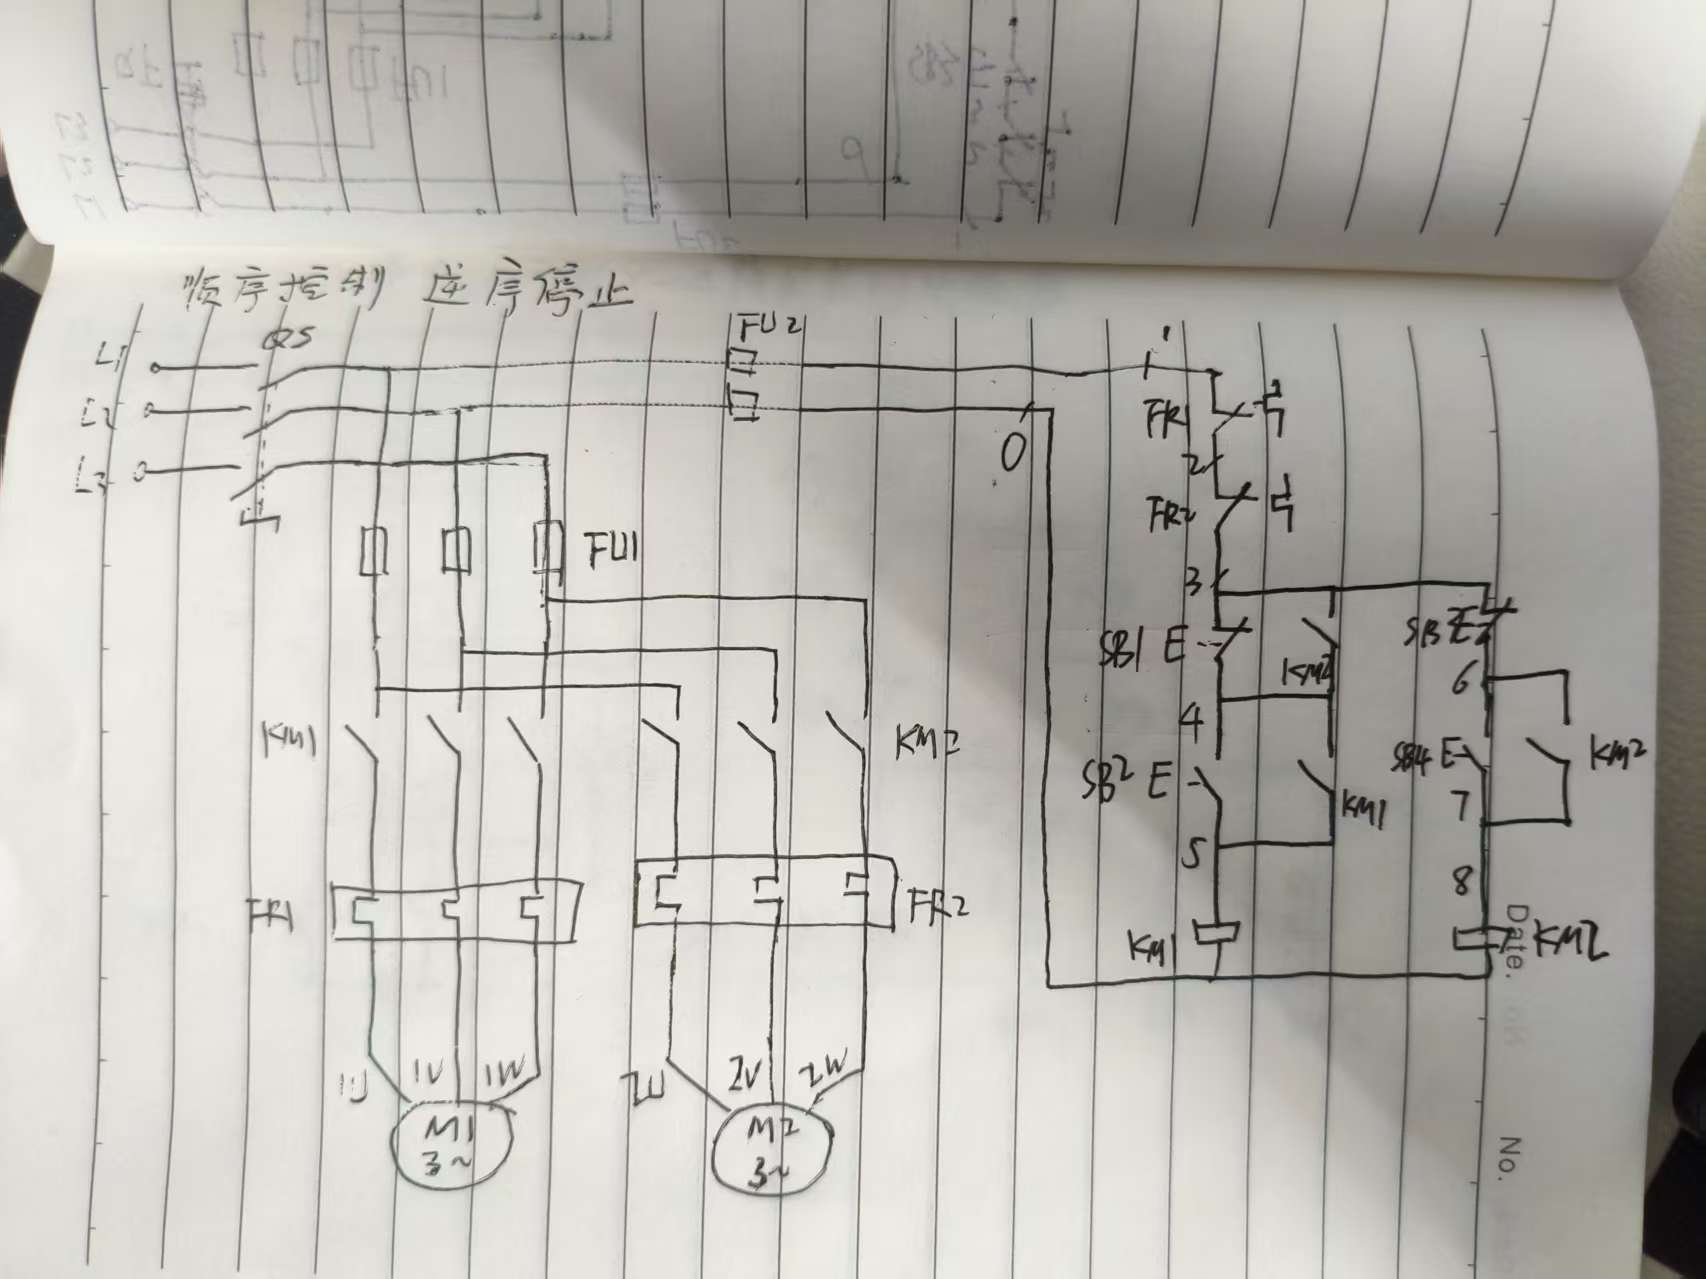 顺序控制 逆序停止
QS
FU2
L1
L2
L3
1
0
FR1
2
FR2
3
FU1
SB1 E
KM2
SB3 E
6
4
KM1
KM2
SB2 E
KM1
SB4 E
KM2
7
5
8
FR1
FR2
KM1
KM2
1U 1V 1W
2U 2V 2W
M1
3~
M2
3~
Date.
No.